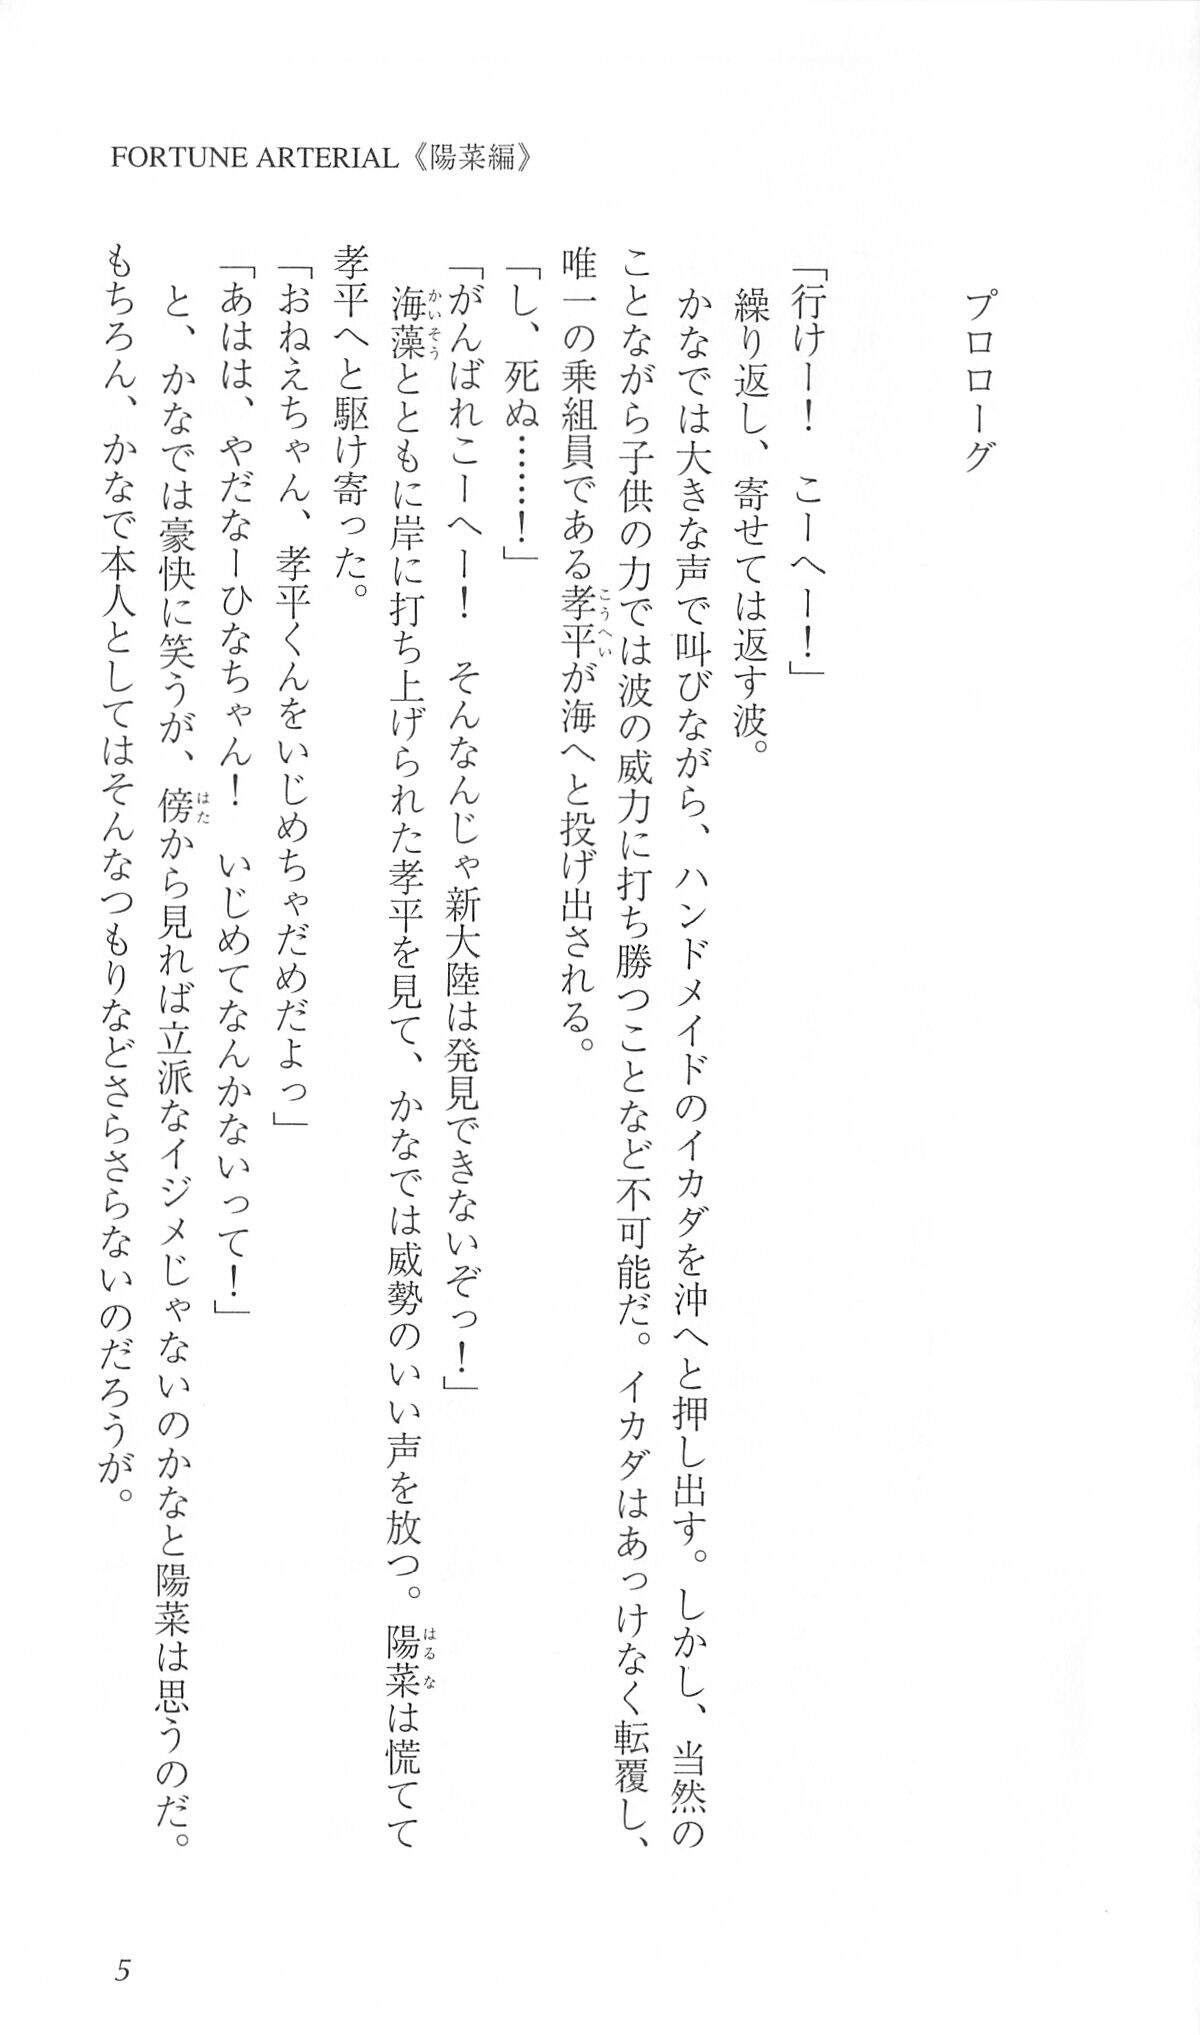 FORTUNE ARTERIAL《陽菜編》
プロローグ
「行けー！　こーへー！」
繰り返し、寄せては返す波。
かなでは大きな声で叫びながら、ハンドメイドのイカダを沖へと押し出す。しかし、当然の
ことながら子供の力では波の威力に打ち勝つことなど不可能だ。イカダはあっけなく転覆し、
唯一の乗組員である孝平が海へと投げ出される。
こうへい
「し、死ぬ……！」
「がんばれこーへー！　そんなんじゃ新大陸は発見できないぞっ！」
海藻とともに岸に打ち上げられた孝平を見て、かなでは威勢のいい声を放つ。陽菜は慌てて
かいそう
はるな
孝平へと駆け寄った。
「おねえちゃん、孝平くんをいじめちゃだめだよっ」
「あはは、やだなーひなちゃん！　いじめてなんかないって！」
と、かなでは豪快に笑うが、傍から見れば立派なイジメじゃないのかなと陽菜は思うのだ。
はた
もちろん、かなで本人としてはそんなつもりなどさらさらないのだろうが。
5